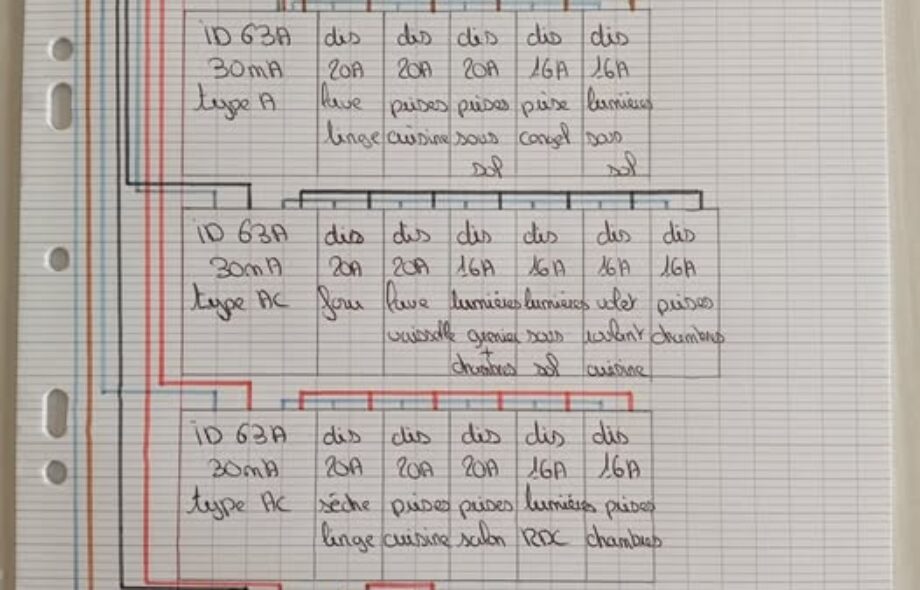 ID 63A dis dis dis dis dis
30mA 20A 20A 20A 16A 16A
type A lave prises prises prise lumières
linge cuisine sous congel sous
sol sol
ID 63A dis dis dis dis dis dis
30mA 20A 20A 16A 16A 16A 16A
type AC four lave lumières lumières volet prises
vaisselle grenier sous roulant chambres
+
chambres sol cuisine
ID 63A dis dis dis dis dis
30mA 20A 20A 20A 16A 16A
type AC sèche prises prises lumières prises
linge cuisine salon RDC chambres